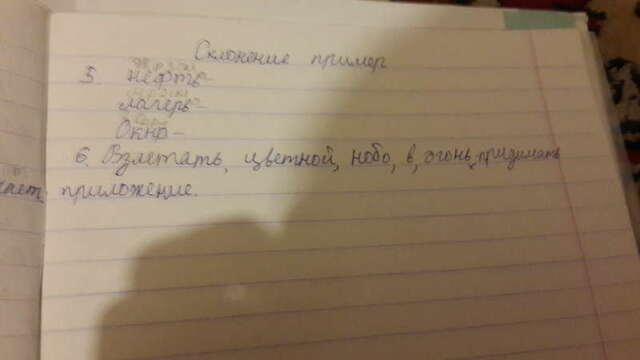 Склонение пример
5. нефть-
лагерь-
Окно-
6. Взлетать, цветной, нобо, в, огонь, придумать
приложение.